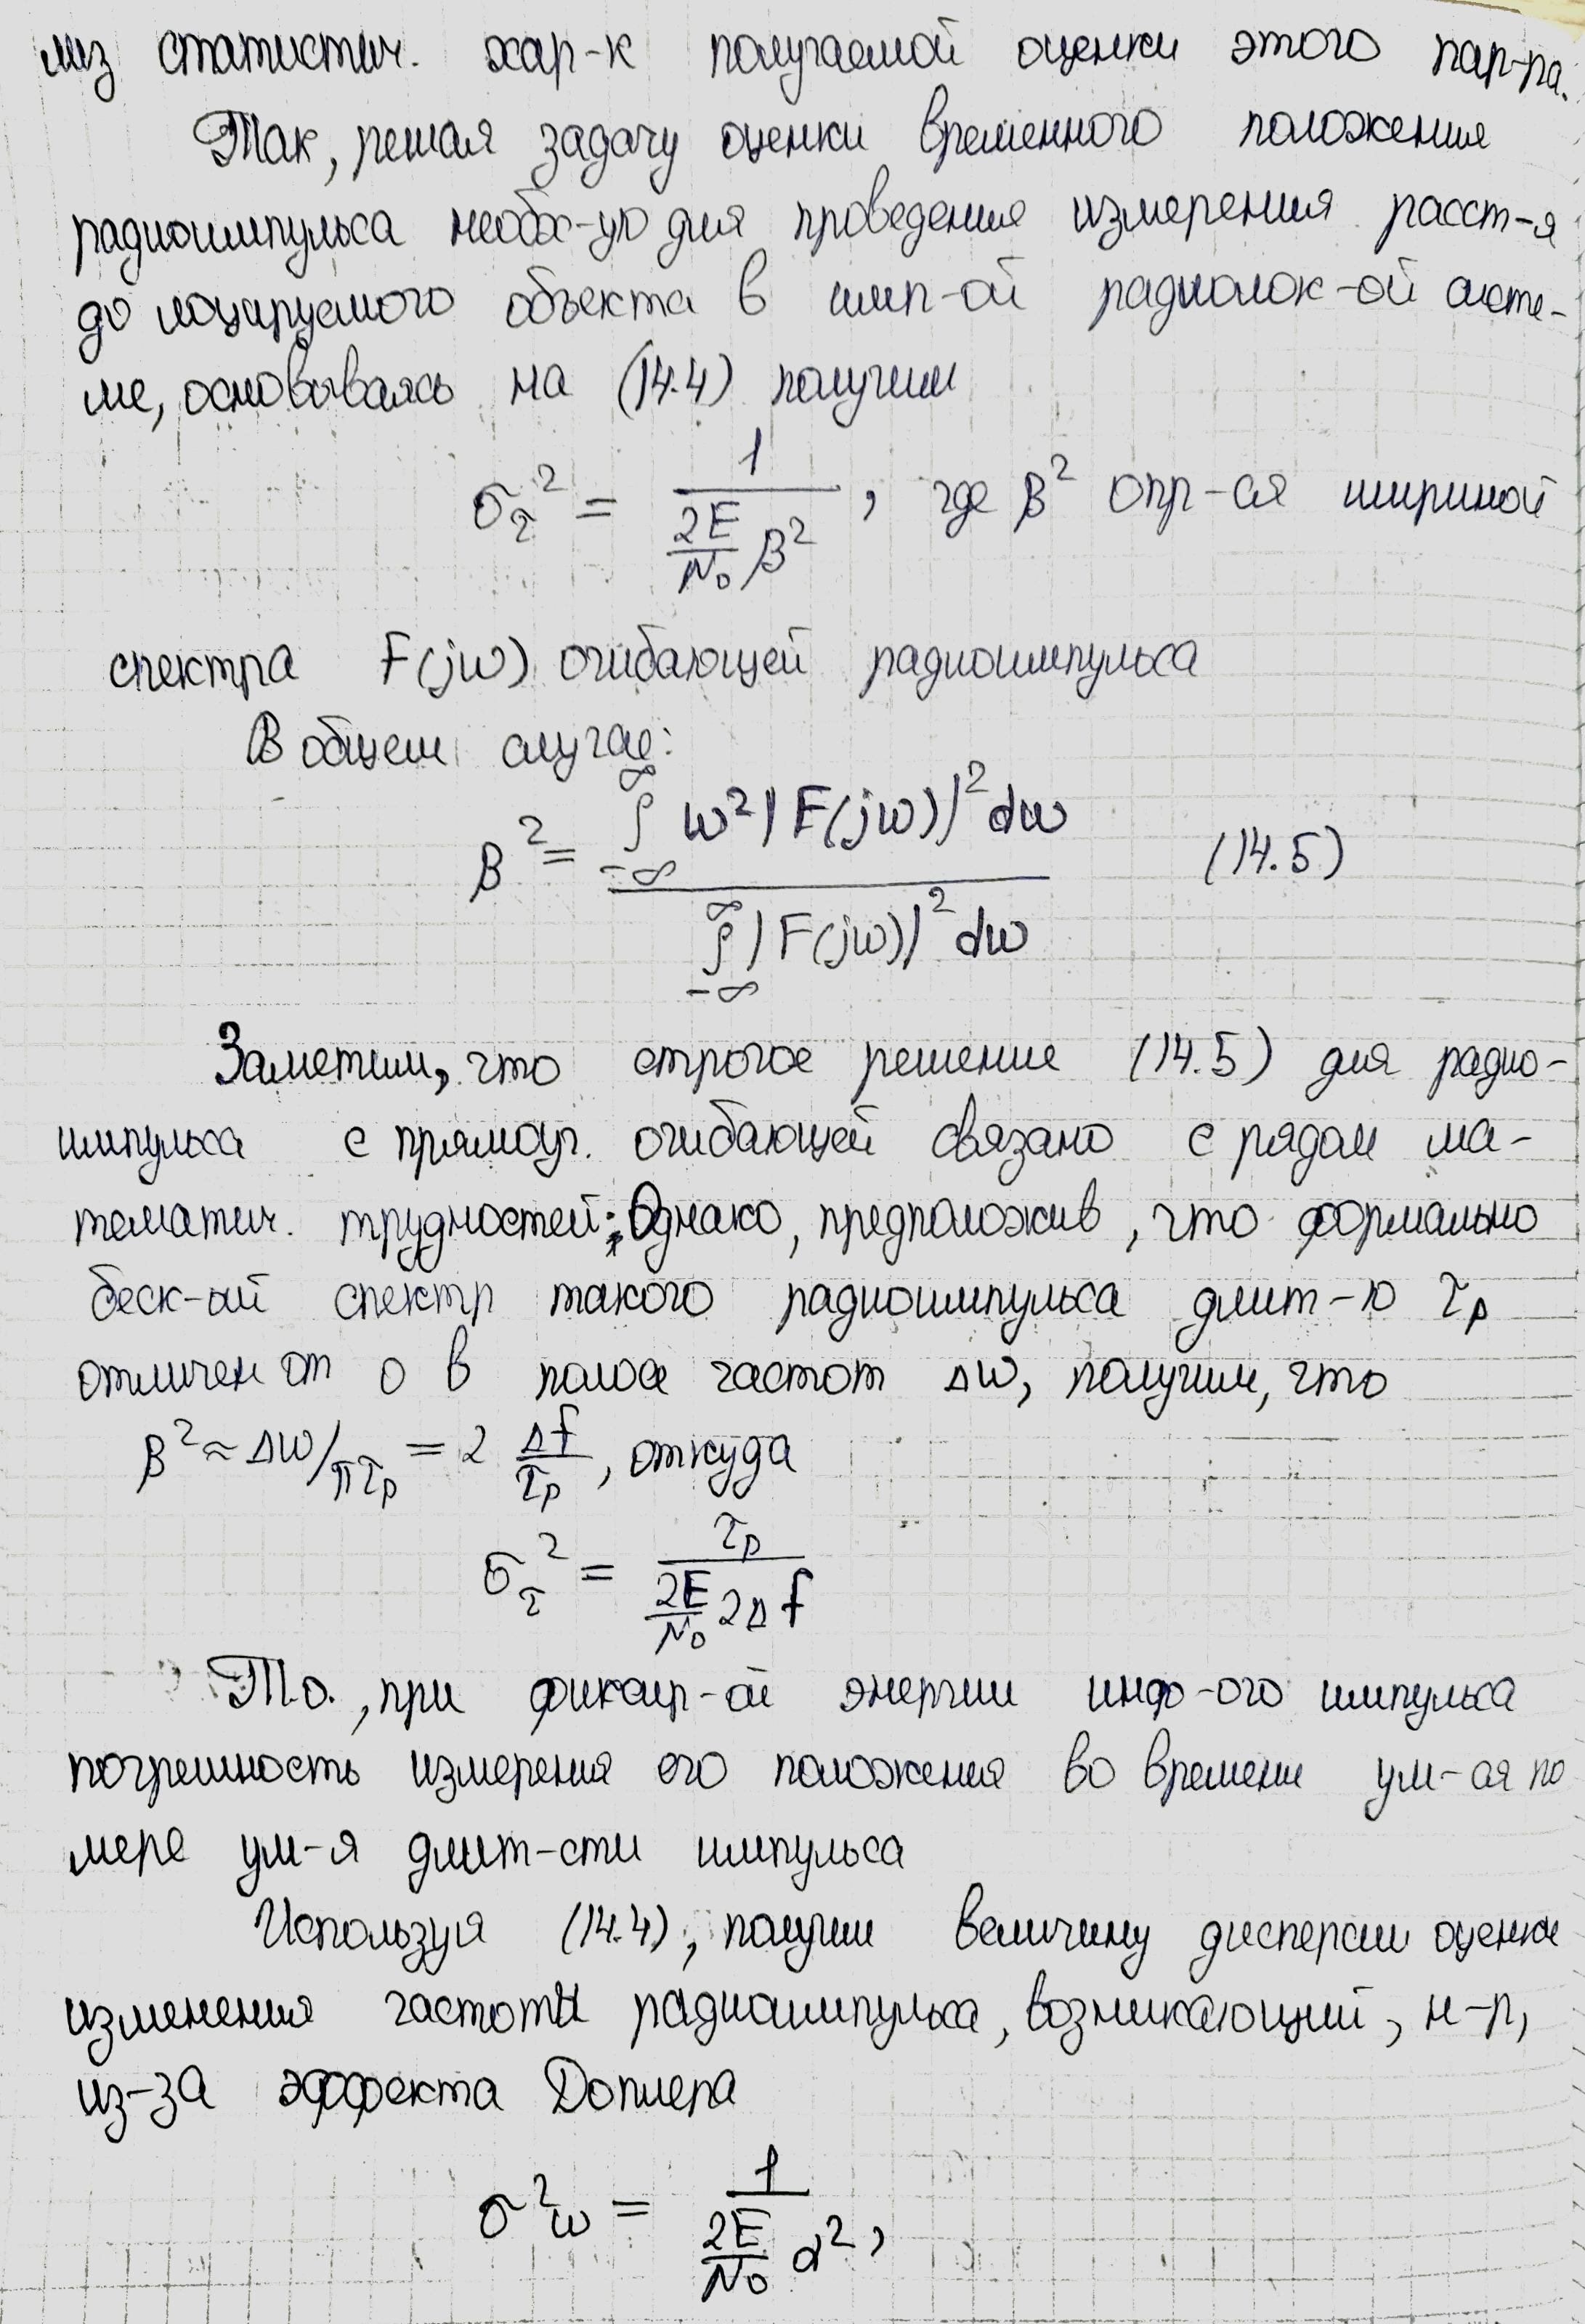 лиз статистич. хар-к получаемой оценки этого пар-ра.
Так, решая задачу оценки временного положения
радиоимпульса необх-ую для проведения измерения расст-я
до лоцируемого объекта в имп-ой радиолок-ой систе-
ме, основываясь на (14.4) получим
σ_τ² = 1 / ((2E/N₀) β²), где β² опр-ся шириной
спектра F(jω) огибающей радиоимпульса
В общем случае:
β² = ∫_{-∞}^{∞} ω²|F(jω)|²dω / ∫_{-∞}^{∞} |F(jω)|²dω (14.5)
Заметим, что строгое решение (14.5) для радио-
импульса с прямоуг. огибающей связано с рядом ма-
тематич. трудностей. Однако, предположив, что формально
беск-ый спектр такого радиоимпульса длит-ю τ_р
отличен от 0 в полосе частот Δω, получим, что
β² ≈ Δω/πτ_р = 2 Δf/τ_р, откуда
σ_τ² = τ_р / ((2E/N₀) 2Δf)
Т.о., при фиксир-ой энергии инф-ого импульса
погрешность измерения его положения во времени ум-ся по
мере ум-я длит-сти импульса
Используя (14.4), получим величину дисперсии оценки
изменения частоты радиоимпульса, возникающий, н-р,
из-за эффекта Доплера
σ²ω = 1 / ((2E/N₀) α²),